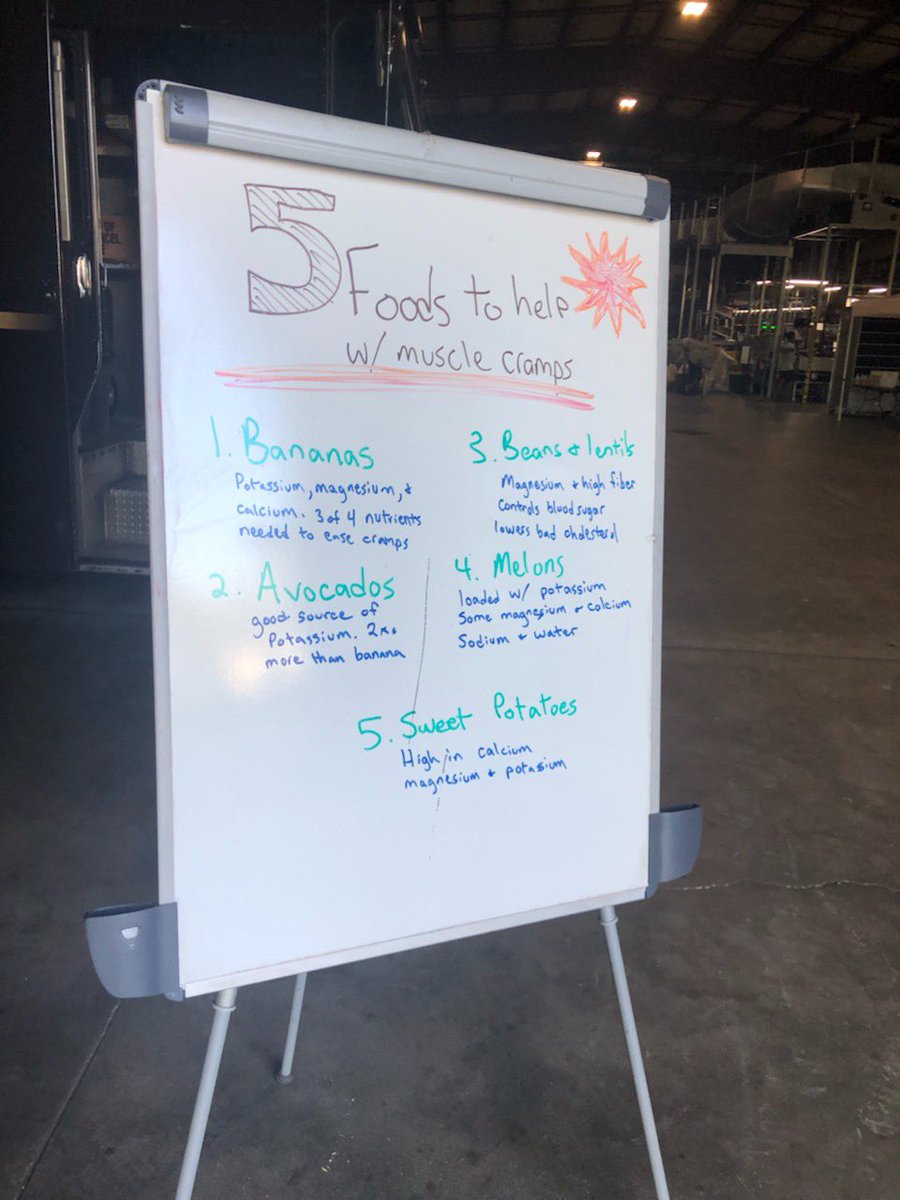 5 Foods to help
w/ muscle cramps
1. Bananas
Potassium, magnesium, &
calcium. 3 of 4 nutrients
needed to ease cramps
2. Avocados
good source of
Potassium. 2x
more than banana
3. Beans & lentils
Magnesium & high fiber
Controls blood sugar
lowers bad cholesterol
4. Melons
loaded w/ potassium
Some magnesium & calcium
Sodium & water
5. Sweet Potatoes
High in calcium
magnesium & potassium